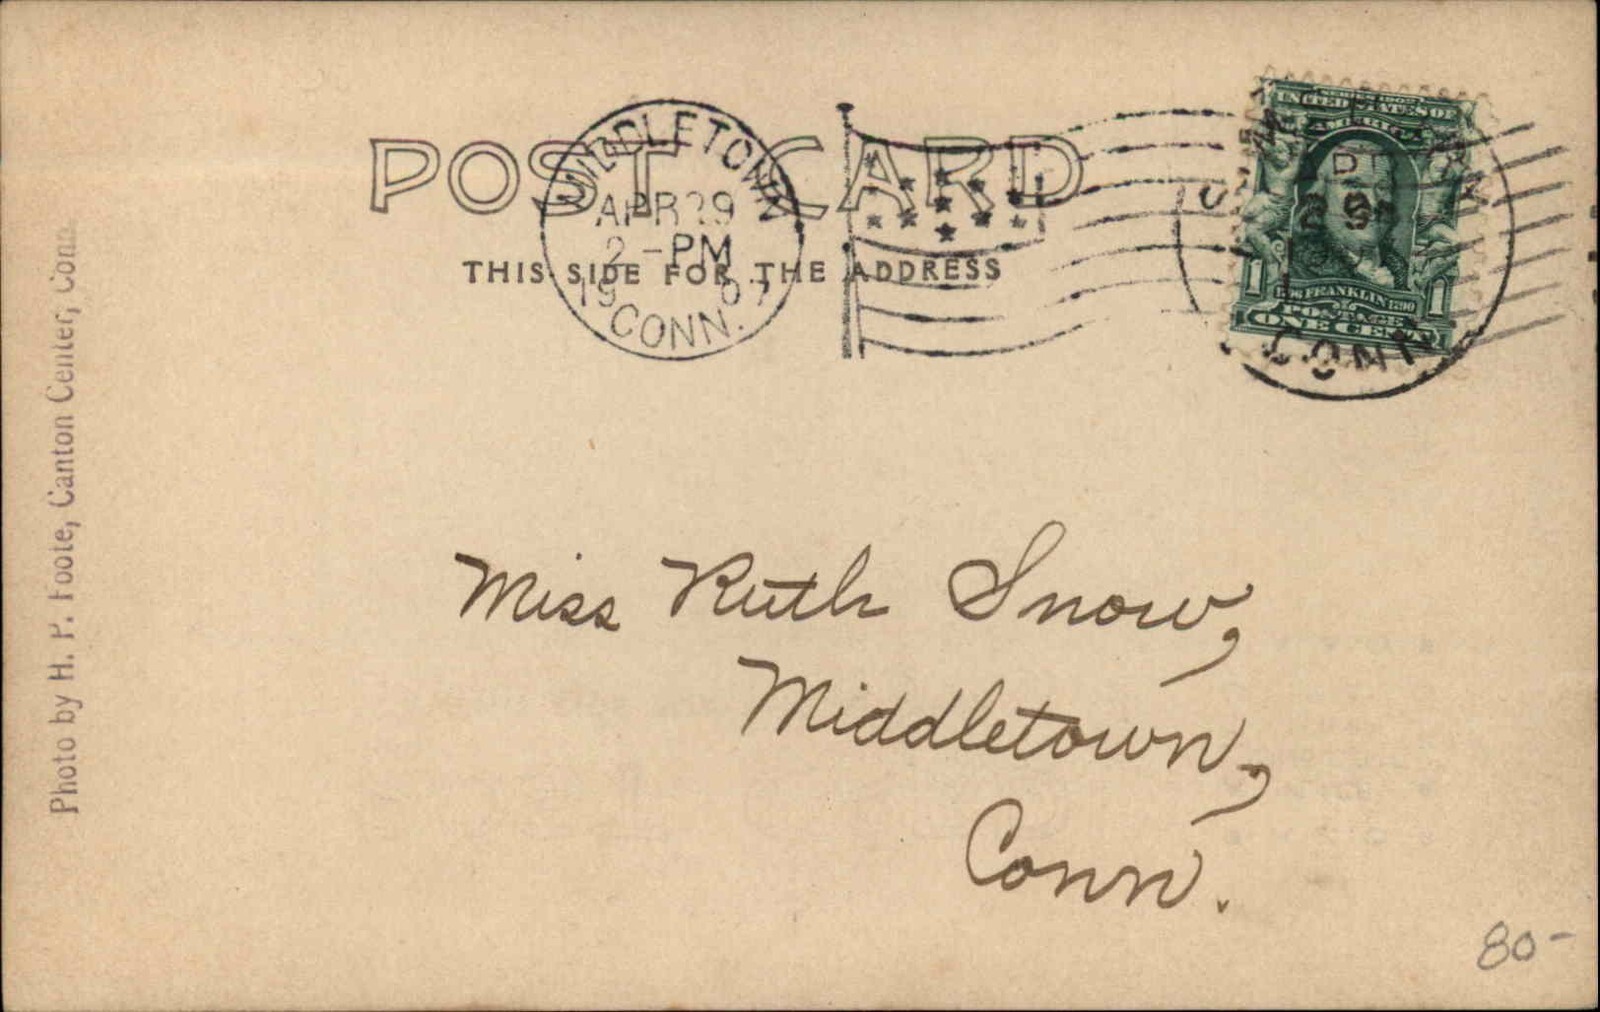 POST CARD
THIS SIDE FOR THE ADDRESS
MIDDLETOWN
APR 29
2-PM
1907
CONN.
SERIES 1902
UNITED STATES OF
AMERICA
1706 FRANKLIN 1790
1 1
POSTAGE
ONE CENT
CONN
Miss Ruth Snow,
Middletown,
Conn.
80-
Photo by H. P. Foote, Canton Center, Conn.